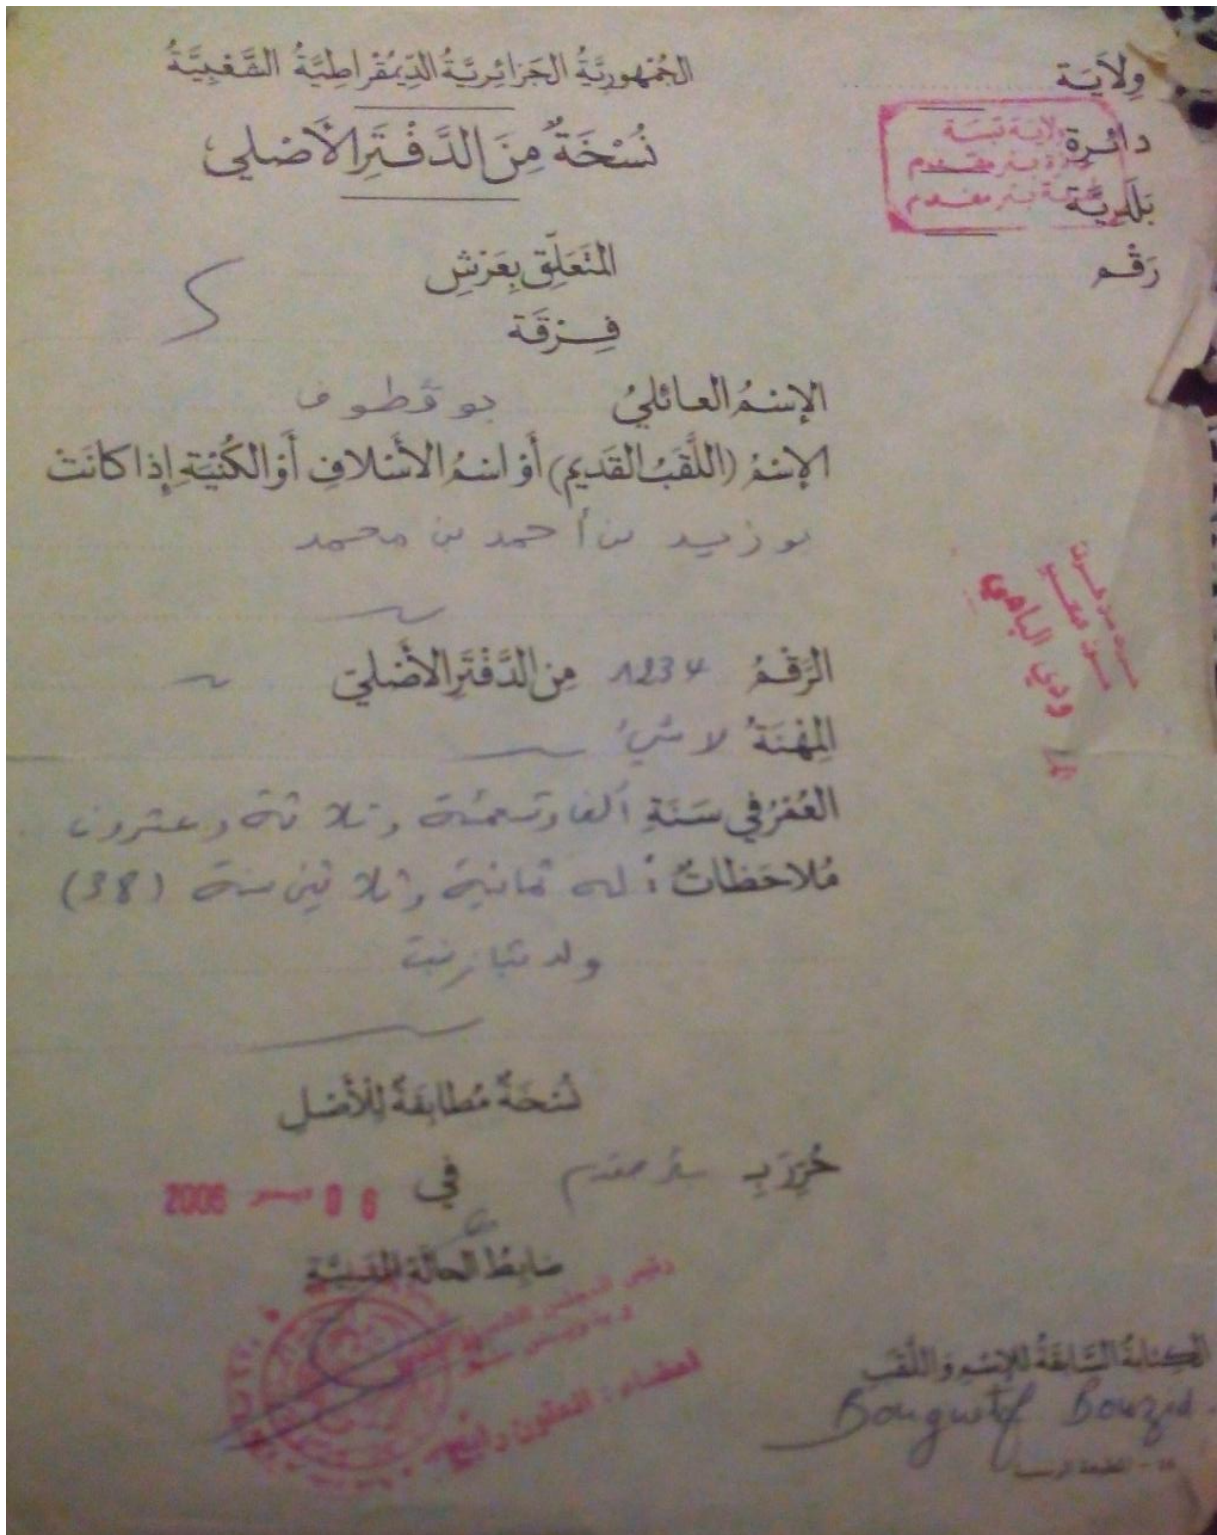 الجُمْهُورِيَّةُ الجَزائِرِيَّةُ الدِّيمُقْراطِيَّةُ الشَّعْبِيَّةُ
وِلاَيَة
نُسْخَةٌ مِنَ الدَّفْتَرِ الأَصْلي
دائرة
بَلَدِيَّة
ولاية تبسة
بئر مقدم
بئر مقدم
رَقْم
المتَعَلِّق بِعَرْشِ
فِرْقَة
الإسْمُ العائليُ بوقطوف
الإسْمُ (اللَّقَبُ القَديم) أَوْ اسْمُ الأَسْلافِ أَوْ الكُنْيَةِ إذا كانَتْ
بوزيد بن أحمد بن محمد
الرَّقْمُ 1234 مِن الدَّفْتَرِ الأَصْلي
المِهْنَةُ لا شيء
العُمْرُ في سَنَةِ ألف وتسعمئة وثلاثة وعشرون
مُلاحَظاتٌ : له ثمانية وثلاثين سنة (38)
ولد
نُسْخَةٌ مُطابِقَةٌ لِلأَصْلِ
حُرِّرَ بِـ بئر مقدم في 06 ديسمبر 2006
ضابِطُ الحالَةِ المَدَنِيَّةِ
الكِتابَةُ السَّابِقَةُ لِلإسْمِ وَاللَّقَبِ
Bouguetof Bouzid